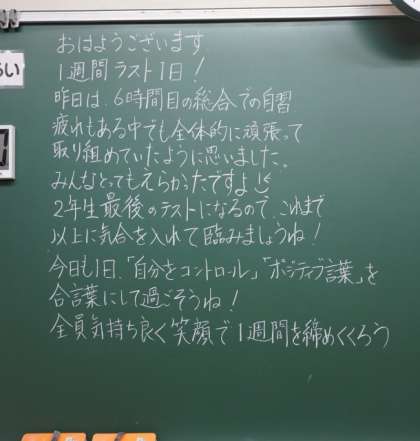 おはようございます
1週間ラスト1日!
昨日は、6時間目の総合での自習
疲れもある中でも全体的に頑張って
取り組めていたように思いました。
みんなとってもえらかったですよ
2年生最後のテストになるので、これまで
以上に気合を入れて臨みましょうね!
今日も1日、「自分をコントロール」「ポジティブ言葉」を
合言葉にして過ごそうね!
全員気持ち良く笑顔で1週間を締めくくろう
らい